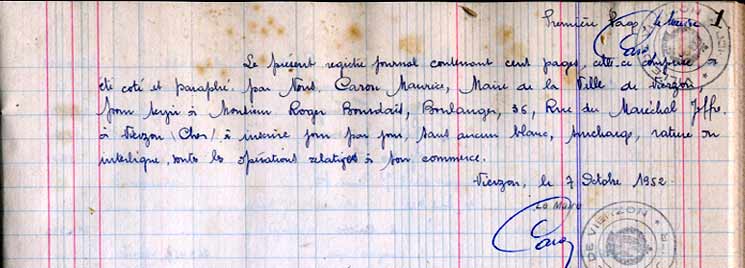 Première Page, le Maire 1
Le présent registre journal contenant cent pages, celle-ci comprise a
été coté et paraphé par Nous, Caron Maurice, Maire de la Ville de Vierzon,
pour servir à Monsieur Roger Bourdais, Boulanger, 36, Rue du Maréchal Joffre
à Vierzon (Cher) à inscrire jour par jour, sans aucun blanc, surcharge, rature ou
interligne, toutes les opérations relatives à son commerce.
Vierzon, le 7 Octobre 1952
Le Maire
DE VIERZON